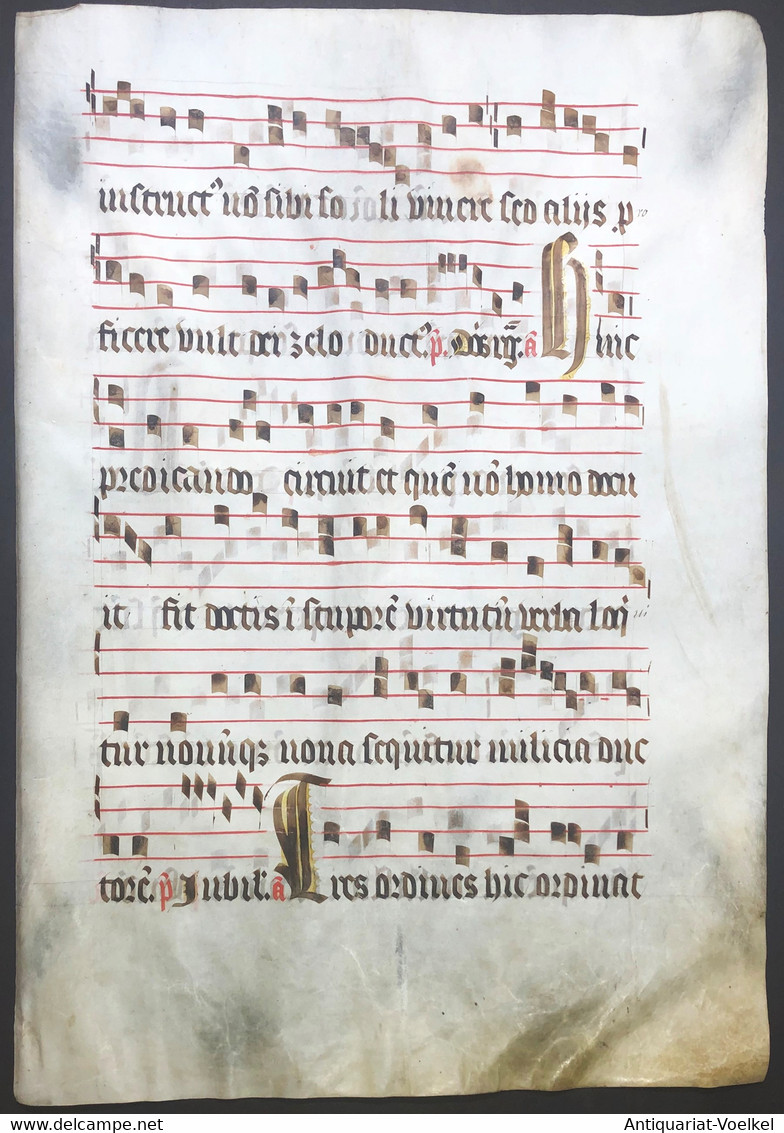 instruct⁹ nō sibi so li vivere sed alijs p ro
ficere vult dei zelo duct⁹. p̄. Dn̄s rḡ. a Huic
predicando circuit et quē nō homo docu
it fit doctis ī stuporē virtutū verba loq̄
tur novūqꝫ nova sequitur milicia duc
torē. p̄ Jubil'. a Tres ordines hic ordinat
www.delcampe.net
Antiquariat-Voelkel